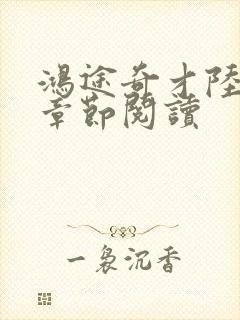 鴻途奇才陸
章節閱讀
一裊沉香